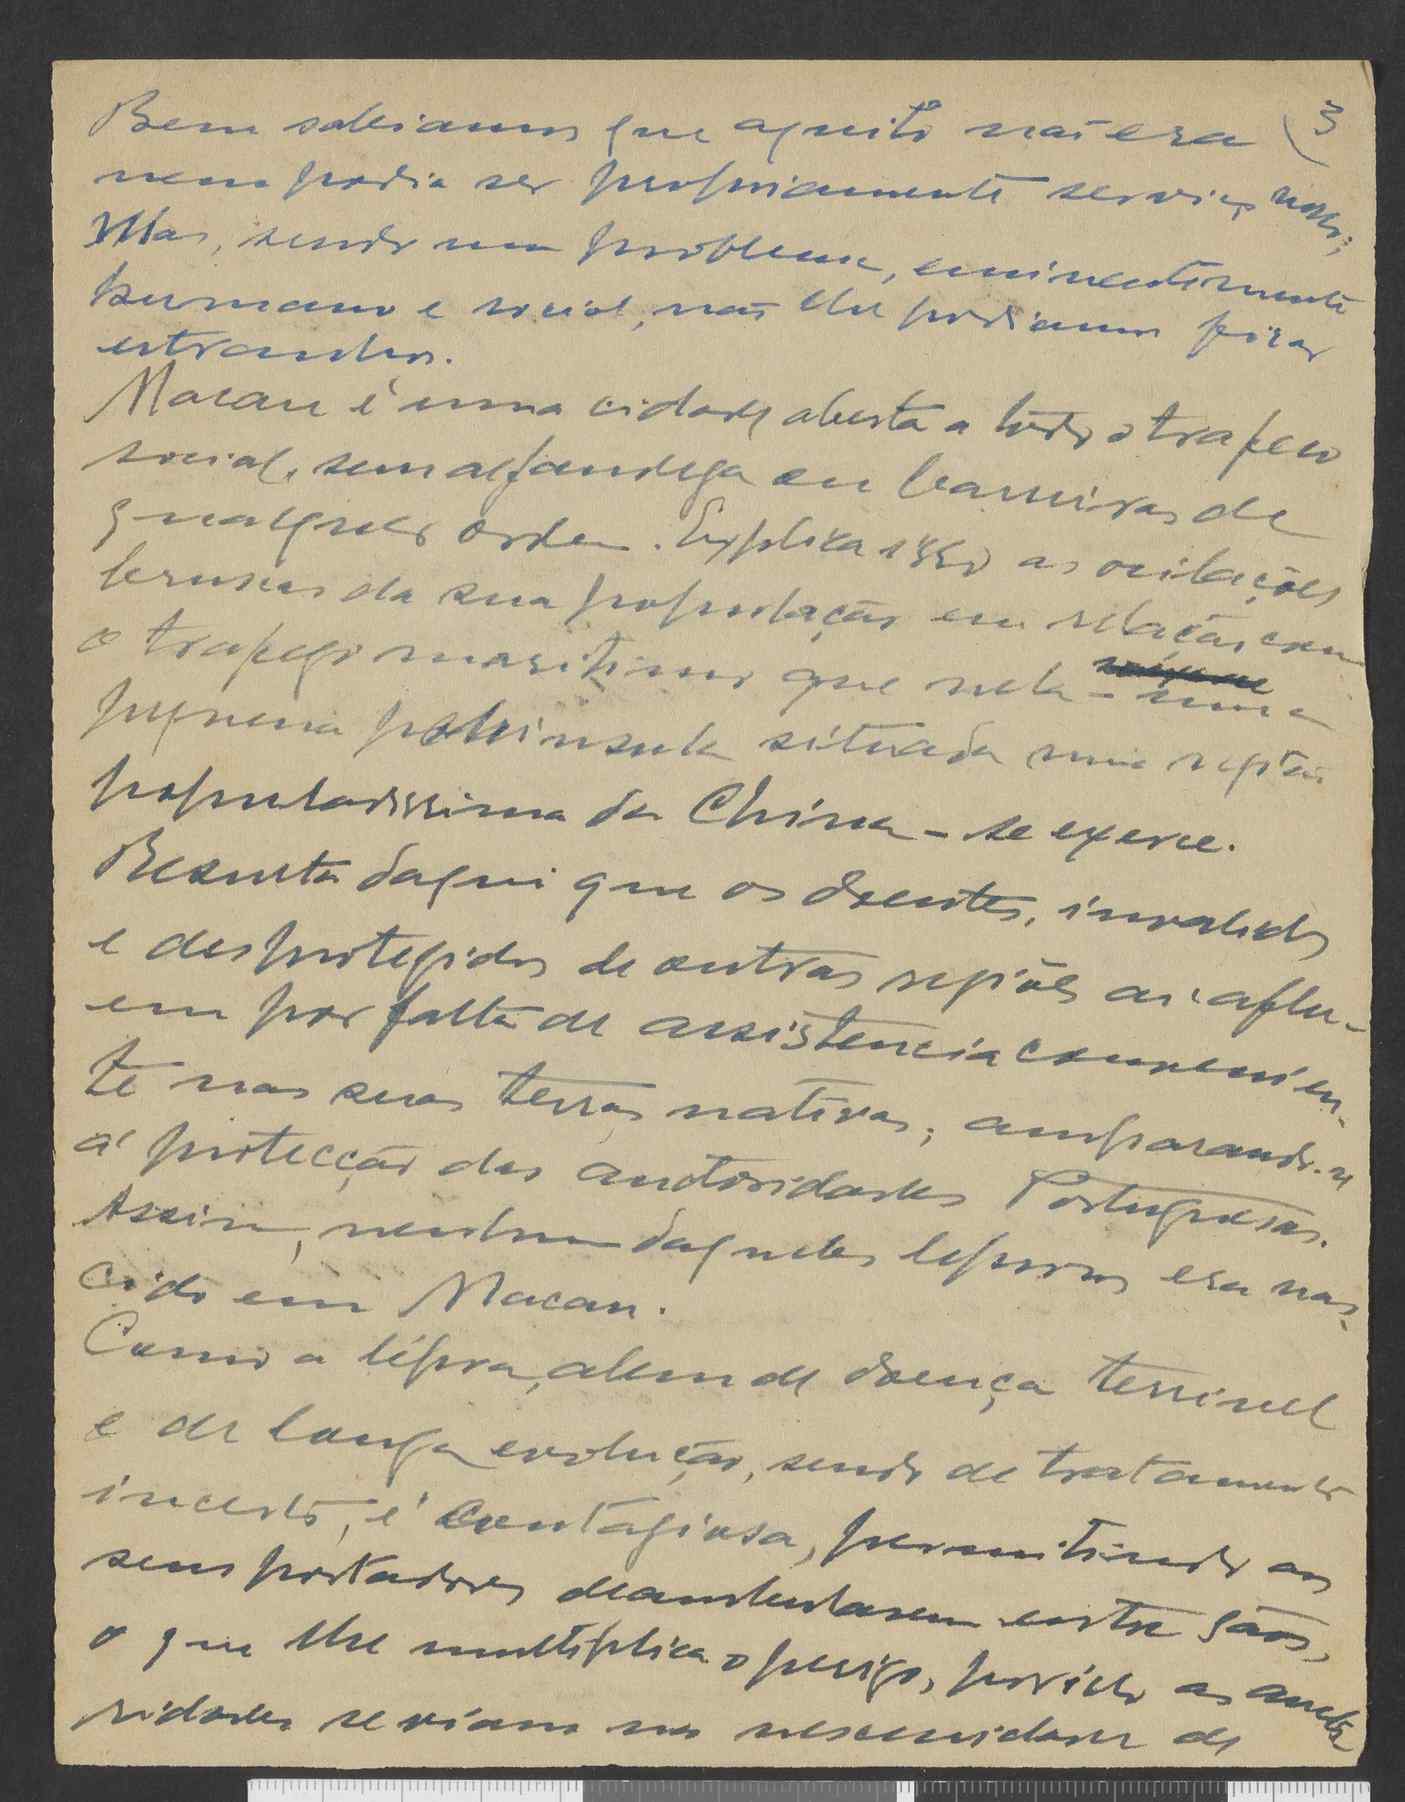 3
Bem sabiamos que aquilo não era
nem podia ser propriamente serviço nosso;
Mas, sendo um problema, eminentemente
humano e social, não lhe podiamos ficar
estranhos.
Macau é uma cidade aberta a todo o trafego
social, sem alfandega ou barreiras de
qualquer ordem. Explica isso as oscilações
bruscas da sua população em relação com
o trafego maritimo que nela - numa
pequena peninsula situada numa região
populadissima da China - se exerce.
Resulta daqui que os doentes, invalidos
e desprotegidos de outras regiões ai aflu-
em por falta de assistencia convenien-
te nas suas terras nativas, amparando-se
á protecção das autoridades Portuguesas.
Assim, nenhum daqueles leprosos era nas-
cido em Macau.
Como a lépra, alem de doença terrivel
e de longa evolução, sendo de tratamento
incerto, é contagiosa, permitindo aos
seus portadores deambularem entre sãos,
o que lhe multiplica o perigo, as auto-
ridades se viam na necessidade de